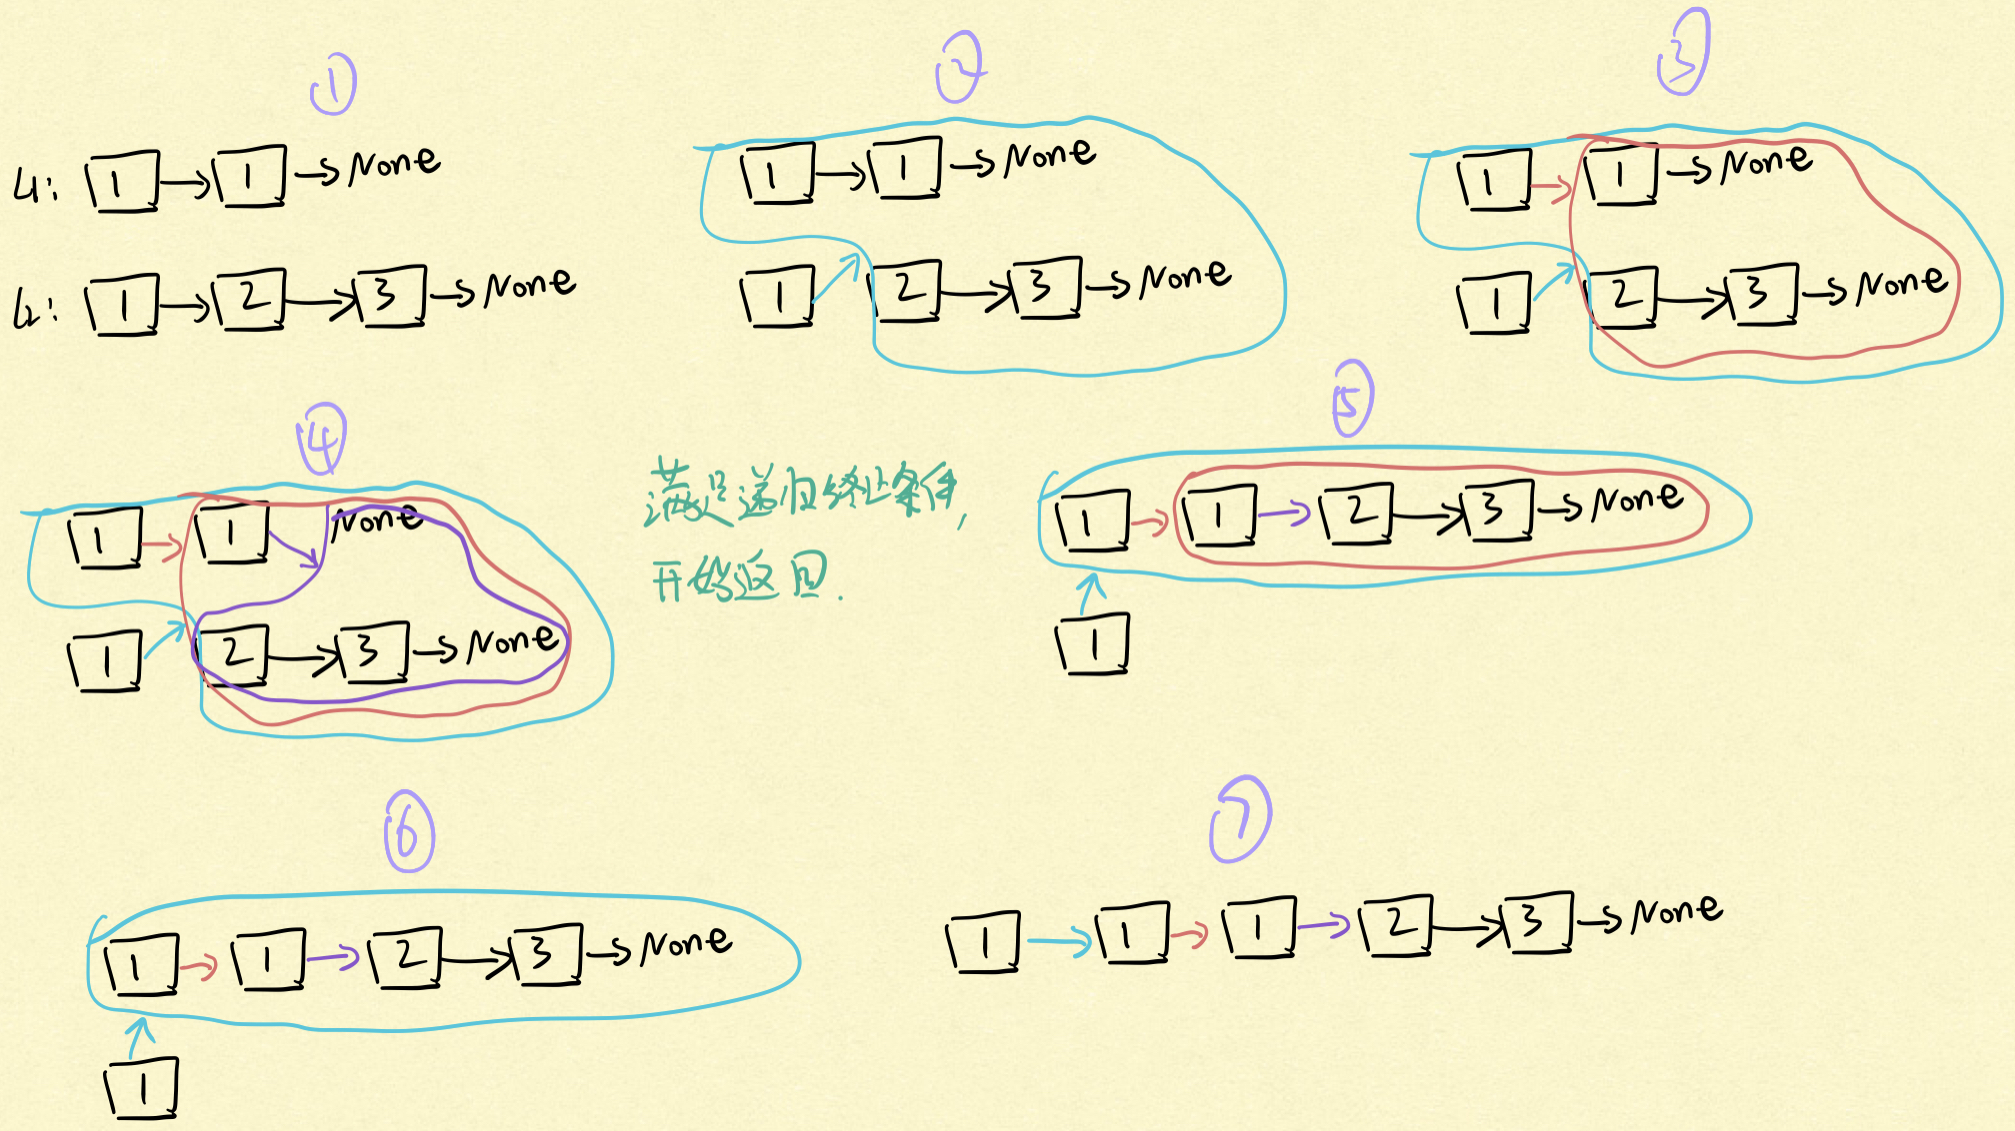 ①
l1: 1 → 1 → None
l2: 1 → 2 → 3 → None
②
1 → 1 → None
1 2 → 3 → None
③
1 → 1 → None
1 2 → 3 → None
④
1 → 1 None
1 2 → 3 → None
满足递归终止条件,
开始返回.
⑤
1 → 1 → 2 → 3 → None
1
⑥
1 → 1 → 2 → 3 → None
1
⑦
1 → 1 → 1 → 2 → 3 → None